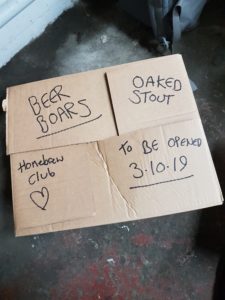 BEER
BOARS
OAKED
STOUT
Homebrew
Club
TO BE OPENED
3.10.19